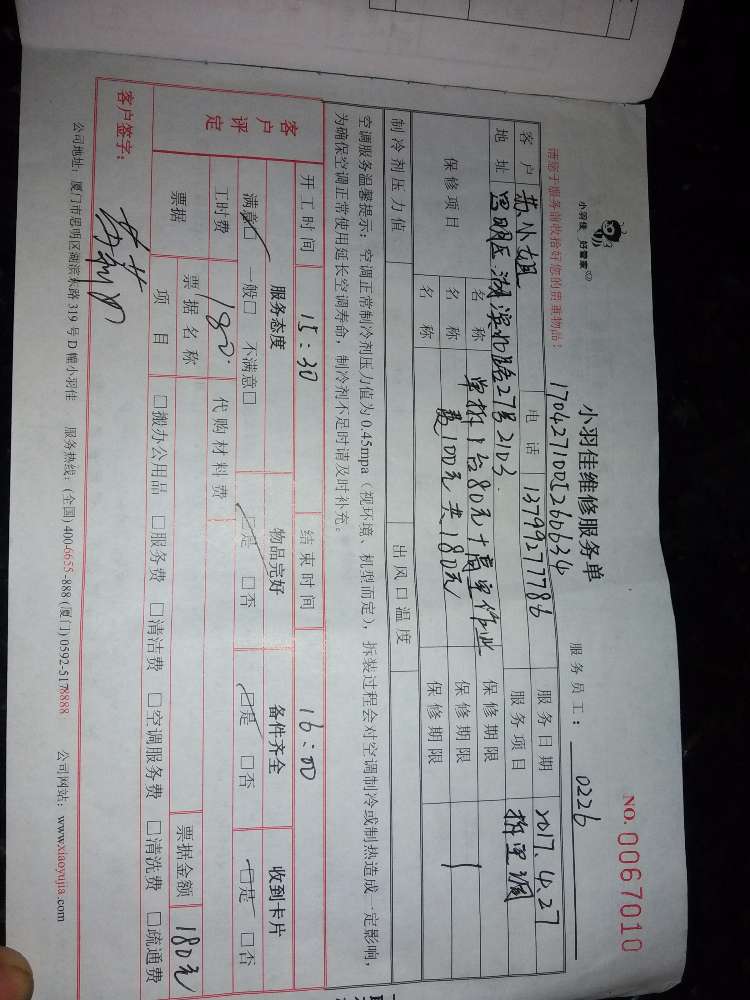 小羽佳 好管家
小羽佳维修服务单
NO.0067010
请您于服务前收拾好您的贵重物品:
1704271005260634
服务员工: 0226
客户 苏小姐 电话 13799277786 服务日期 2017.4.27
地址 思明区湖滨北路27号2103 服务项目 拆空调
保修项目 名称 单拆1台80元+高空作业 保修期限
名称 费100元共180元 保修期限
名称 保修期限
制冷剂压力值 出风口温度
空调服务温馨提示: 空调正常制冷剂压力值为0.45mpa(视环境、机型而定), 拆装过程会对空调制冷或制热造成一定影响,
为确保空调正常使用延长空调寿命, 制冷剂不足时请及时补充。
开工时间 15:30 结束时间 16:00
客户评定 服务态度 物品完好 备件齐全 收到卡片
满意□ 一般□ 不满意□ □是 □否 □是 □否 □是 □否
工时费 180. 代购材料费
票据 票据名称 票据金额 180元
项目 □搬办公用品 □服务费 □清洁费 □空调服务费 □清洗费 □疏通费
客户签字:
公司地址: 厦门市思明区湖滨东路319号D幢小羽佳 服务热线: (全国) 400-6655-888 (厦门) 0592-5178888 公司网站: www.xiaoyujia.com